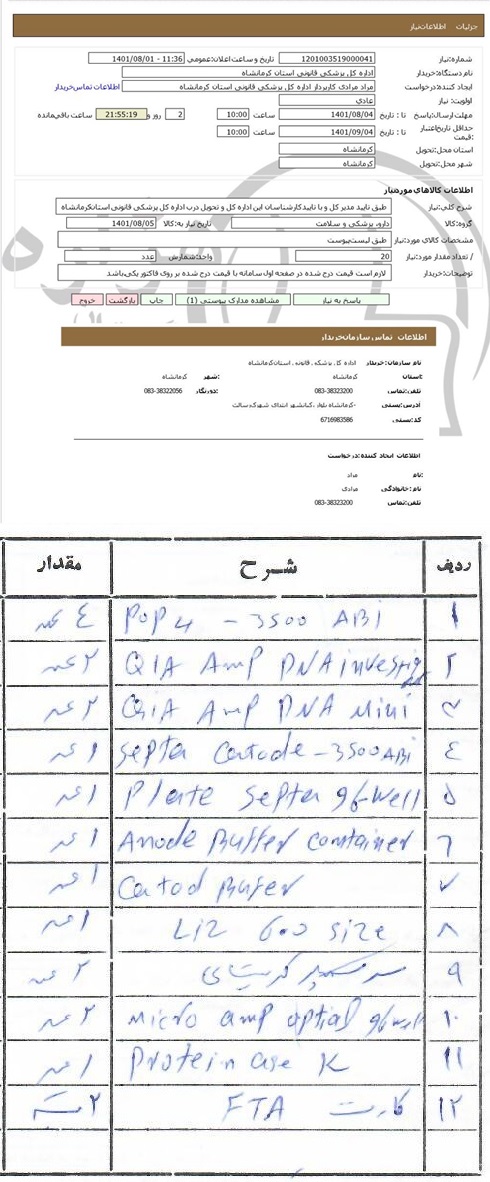 جزئیات اطلاعات نیاز
شماره نیاز: 1201003519000041 تاریخ و ساعت اعلان عمومی: 11:36 - 1401/08/01
نام دستگاه خریدار: اداره کل پزشکی قانونی استان کرمانشاه
ایجاد کننده درخواست: مراد مرادی کاربرداز اداره کل پزشکی قانونی استان کرمانشاه اطلاعات تماس خریدار
اولویت نیاز: عادی
مهلت ارسال پاسخ: تا تاریخ: 1401/08/04 ساعت 10:00 2 روز و 21:55:19 ساعت باقی‌مانده
حداقل تاریخ اعتبار قیمت: تا تاریخ: 1401/09/04 ساعت 10:00
استان محل تحویل: کرمانشاه
شهر محل تحویل: کرمانشاه
اطلاعات کالاهای مورد نیاز
شرح کلی نیاز: طبق تایید مدیر کل و با تاییدکارشناسان این اداره کل و تحویل درب اداره کل پزشکی قانونی استانکرمانشاه
گروه کالا: دارو، پزشکی و سلامت تاریخ نیاز به کالا: 1401/08/05
مشخصات کالای مورد نیاز: طبق لیست پیوست
تعداد/مقدار مورد نیاز: 20 واحد شمارش: عدد
توضیحات خریدار: لازم است قیمت درج شده در صفحه اول سامانه با قیمت درج شده بر روی فاکتور یکی باشد
پاسخ به نیاز مشاهده مدارک پیوستی (1) چاپ بازگشت خروج
اطلاعات تماس سازمان خریدار
نام سازمان خریدار: اداره کل پزشکی قانونی استان کرمانشاه
استان: کرمانشاه شهر: کرمانشاه
تلفن تماس: 083-38323200 دورنگار: 083-38322056
آدرس پستی: کرمانشاه بلوار کیانشهر ابتدای شهرک رسالت-
کد پستی: 6716983586
اطلاعات ایجاد کننده درخواست
نام: مراد
نام خانوادگی: مرادی
تلفن تماس: 083-38323200
ردیف شرح مقدار
۱ POP4 - 3500 ABI ٤ عدد
۲ QIA Amp DNA investig ۲ عدد
۳ QIA Amp DNA Mini ۲ عدد
٤ Septa Catode - 3500 ABI ۱ عدد
۵ Plate Septa 96 Well ۱ عدد
۶ Anode Buffer Container ۱ عدد
۷ Catod Bufer ۱ عدد
۸ Liz 600 size ۱ عدد
۹ ۲ عدد
۱۰ Micro amp optial 96 well ۲ عدد
۱۱ Protein ase K ۱ عدد
۱۲ کارت FTA ۲ بسته